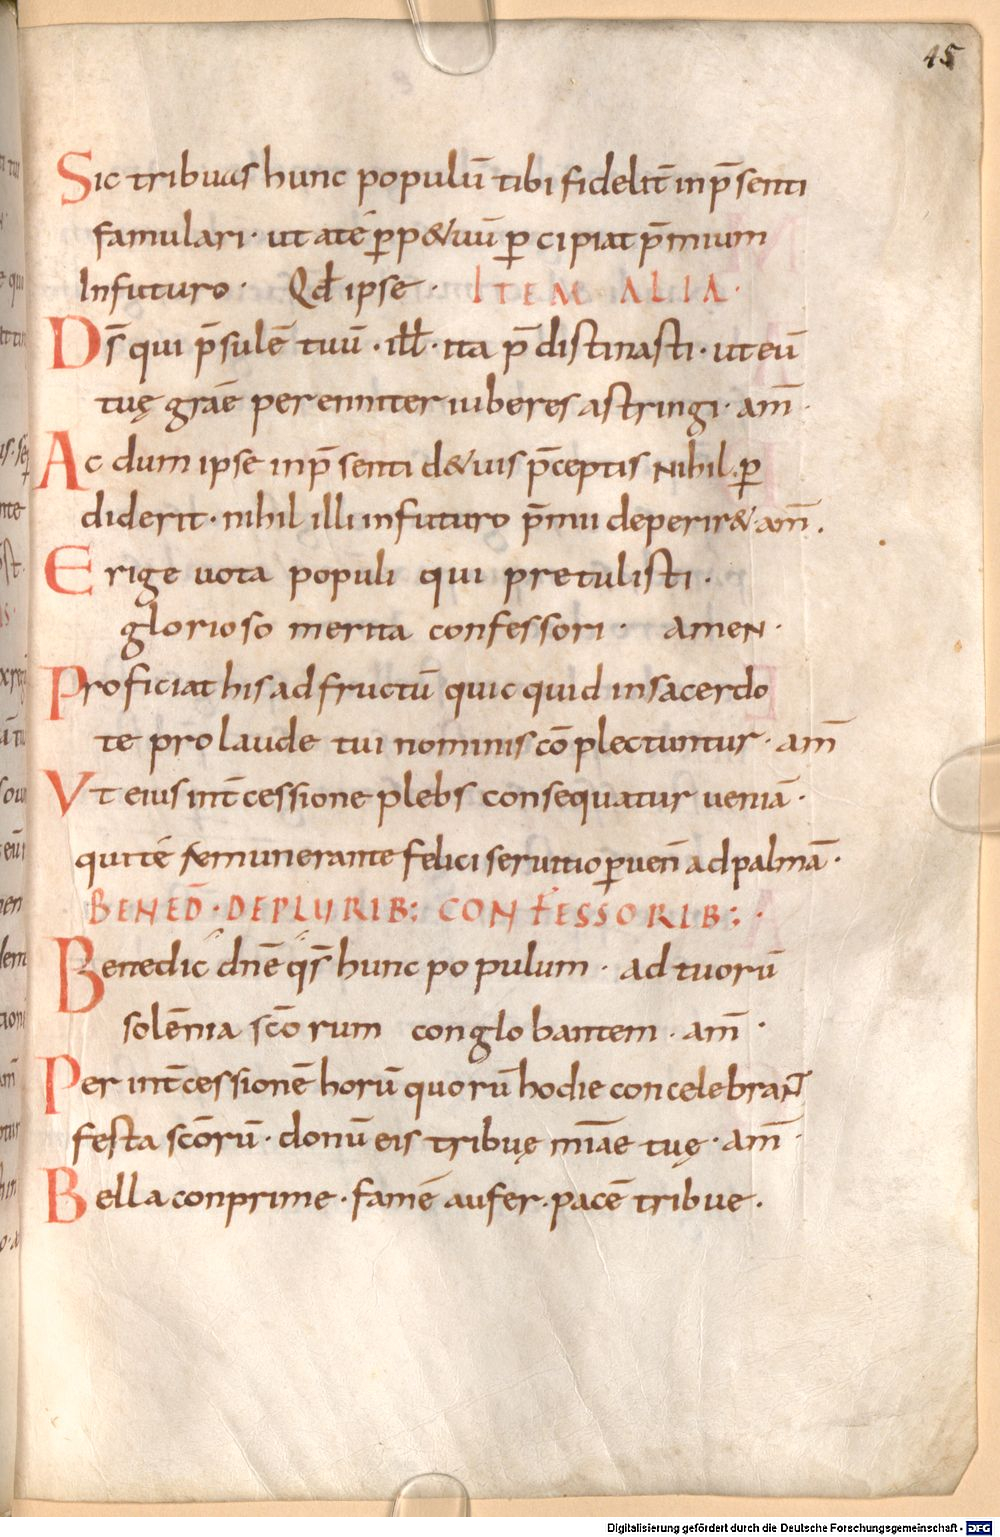 45
Sic tribuas hunc populū tibi fidelit̄ inp̄senti
famulari· ut ate p̄p&uū p̄cipiat p̄mium
Infuturo· Qd̄ ipse· ITEM ALIA·
Ds̄ qui p̄sulē tuū· ill̄· ita p̄distinasti· ut eū
tuę grāe perenniter iuberes astringi· am̄·
Ac dum ipse inp̄senti d&uis p̄ceptis nihil p̄
diderit· nihil illi infuturo p̄mii deperir& am̄.
Erige uota populi qui pretulisti·
glorioso merita confessori· AMEN·
Proficiat his ad fructū quicquid insacerdo
te pro laude tui nominis cōplectuntur· am̄
Vt eius int̄cessione plebs consequatur ueniā·
qui te remunerante felici seruitio p̄uen̄ ad palmā·
BENED̄· DE PLURIB: CONFESSORIB:·
Benedic dn̄e qs̄ hunc populum· ad tuorū
solēnia scōrum conglobantem· am̄·
Per int̄cessionē horū quorū hodie concelebraNT̄
festa scōrū· donū eis tribuę mīae tuę· am̄·
Bella conprime· famē aufer· pacē tribue·
Digitalisierung gefördert durch die Deutsche Forschungsgemeinschaft - DFG